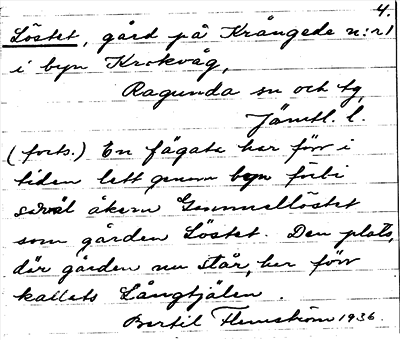 4.
Löstet, gård på Krångede n:r 1
i byn Krokvåg,
Ragunda sn och tg,
Jämtl. l.
(forts.) En fägata har förr i
tiden lett genom byn förbi
såväl åkern Gammellöstet
som gården Löstet. Den plats,
där gården nu står, har förr
kallats Långtjälen.
Bertil Flemström 1936.